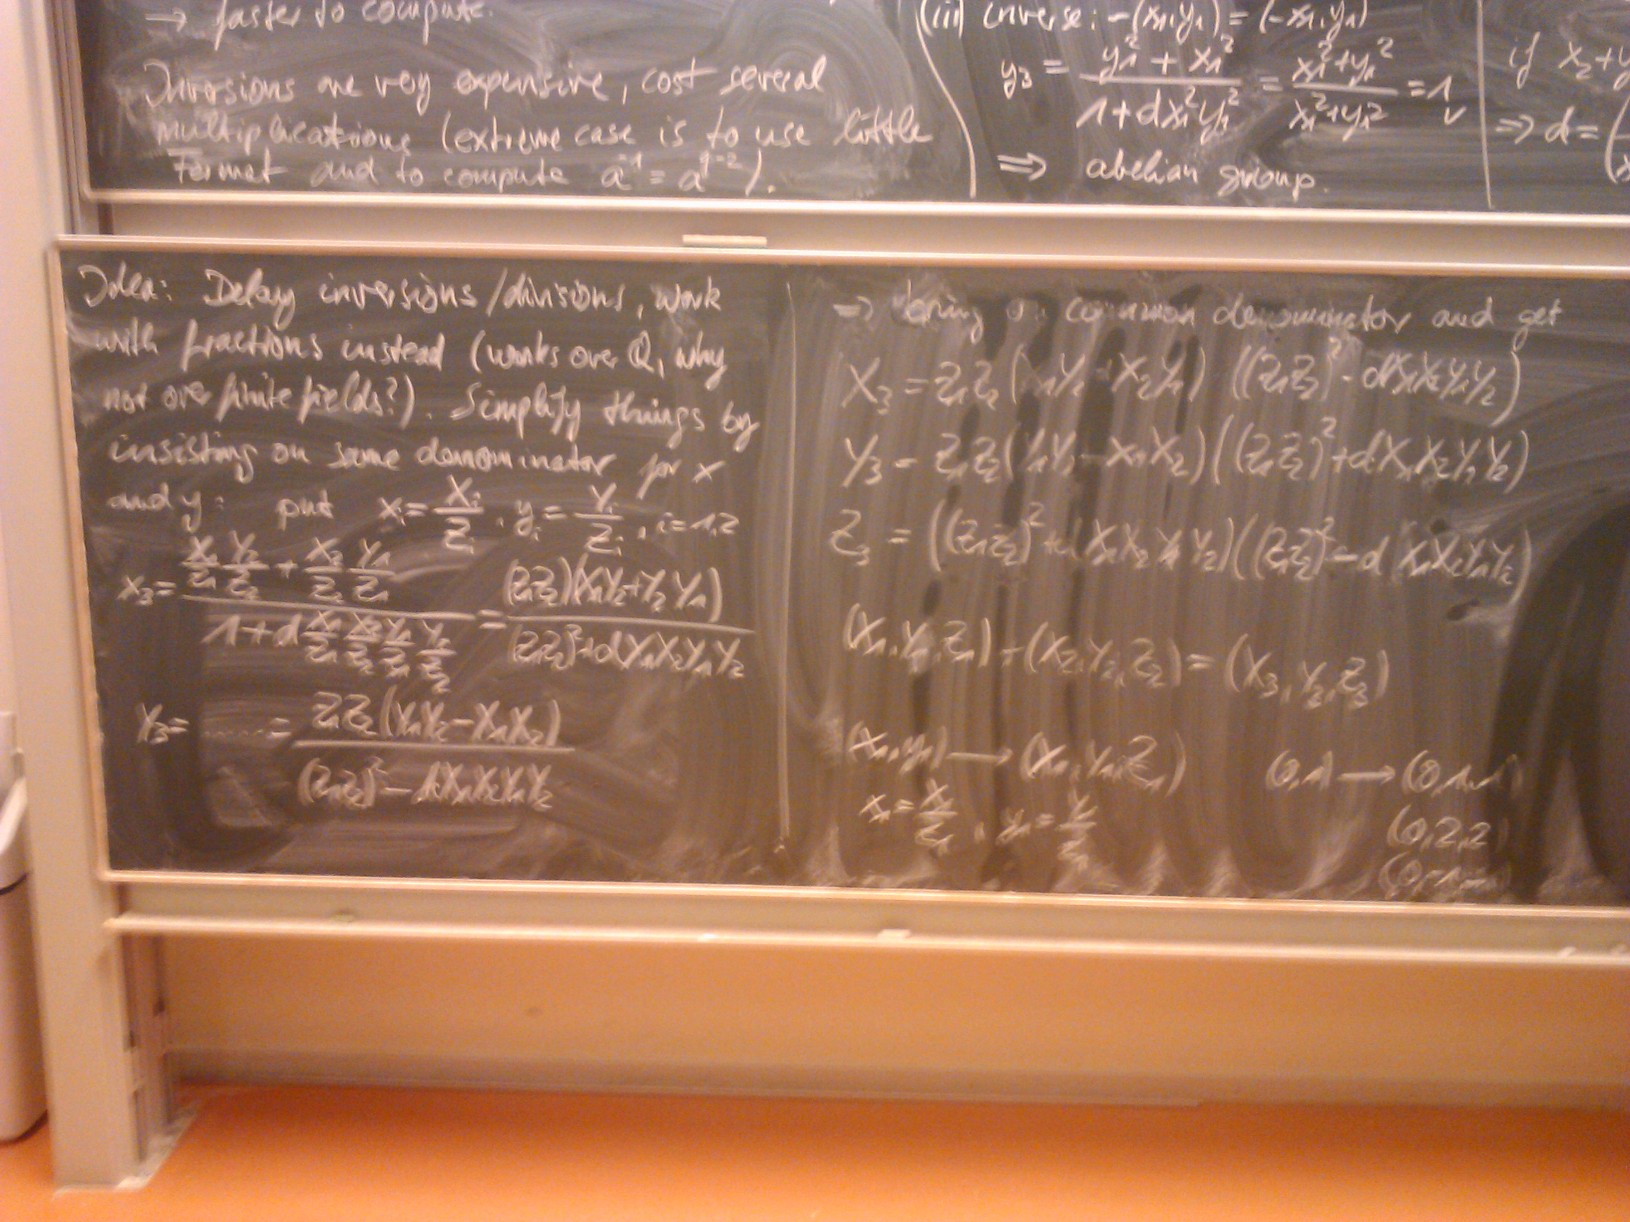 → faster to compute.
Inversions are very expensive, cost several
multiplications (extreme case is to use little
Fermat and to compute a⁻¹ = a^{q-2}).
(iii) inverse: -(x₁,y₁) = (-x₁,y₁)
y₃ = (y₁² + x₁²)/(1+dx₁²y₁²) = (x₁²+y₁²)/(x₁²+y₁²) = 1 ✓
⇒ abelian group.
if x₂+y
⇒ d = (
Idea: Delay inversions/divisions, work
with fractions instead (works over Q, why
not over finite fields?). Simplify things by
insisting on same denominator for x
and y: put xᵢ = Xᵢ/Zᵢ, yᵢ = Yᵢ/Zᵢ, i=1,2
x₃ = (X₁/Z₁ Y₂/Z₂ + X₂/Z₂ Y₁/Z₁)/(1+d X₁/Z₁ X₂/Z₂ Y₁/Z₁ Y₂/Z₂) = (Z₁Z₂)(X₁Y₂+X₂Y₁)/((Z₁Z₂)²+dX₁X₂Y₁Y₂)
y₃ = ..... = Z₁Z₂(Y₁Y₂-X₁X₂)/((Z₁Z₂)²-dX₁X₂Y₁Y₂)
→ bring on common denominator and get
X₃ = Z₁Z₂(X₁Y₂+X₂Y₁)((Z₁Z₂)²-dX₁X₂Y₁Y₂)
Y₃ = Z₁Z₂(Y₁Y₂-X₁X₂)((Z₁Z₂)²+dX₁X₂Y₁Y₂)
Z₃ = ((Z₁Z₂)²+dX₁X₂Y₁Y₂)((Z₁Z₂)²-dX₁X₂Y₁Y₂)
(X₁,Y₁,Z₁)+(X₂,Y₂,Z₂) = (X₃,Y₃,Z₃)
(x₁,y₁) → (X₁,Y₁,Z₁) (0,1) → (0,1,1)
x₁ = X₁/Z₁, y₁ = Y₁/Z₁ (0,2,2)